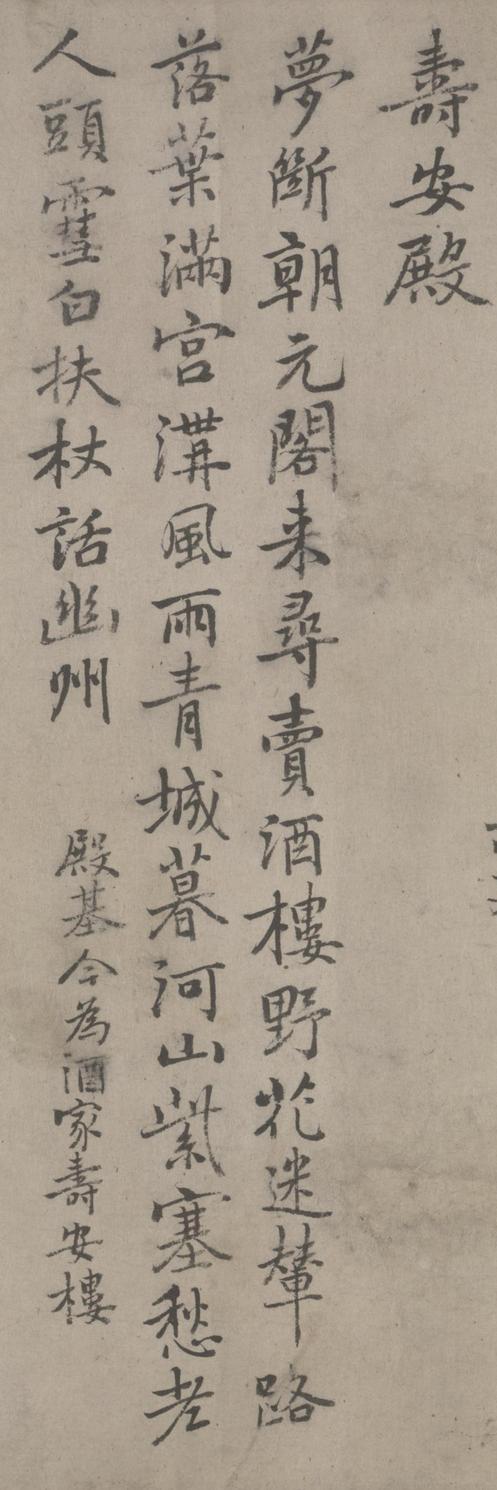 壽安殿
夢斷朝元閣来尋賣酒樓野花迷輦路
落葉滿宫溝風雨青城暮河山紫塞愁老
人頭雪白扶杖話幽州
殿基今為酒家壽安樓